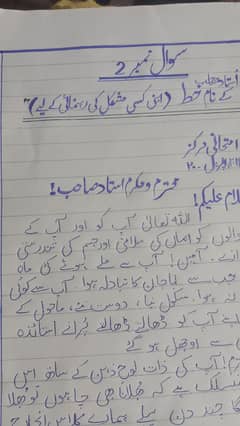 سوال نمبر 2
استاد صاحب
کے نام خط (اپنی کسی مشکل کی رہنمائی کے لیے)"
امتحانی مرکز
محترم و مکرم استاد صاحب!
السلام علیکم!
اللہ تعالیٰ آپ کو اور آپ کے
والوں کو ایمان کی سلامتی اور جسم کی تندرستی
آمین! آپ سے ملے ہوئے کئی ماہ
جب سے ابا جان کا تبادلہ ہوا آپ سے کوئی
ہوا۔ سکول نیا، دوست نئے، ماحول کے
آپ کو ڈھالتے ڈھالتے پرانے اساتذہ
سے اوجھل ہو گئے
آپ کی ذات لوح ذہن کے ساتھ اس
منسلک ہے کہ بھلانا بھی چاہوں تو بھلا
چند دن پہلے ہمارے کلاس انچارج